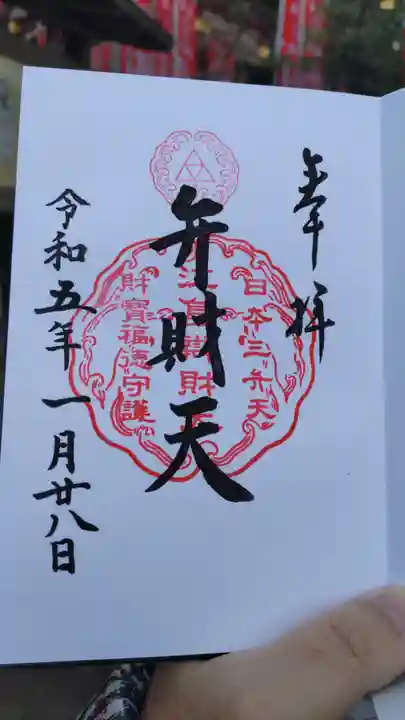 奉拝
弁財天
日本三弁天
江島辨財天
財寳福徳守護
令和五年一月廿八日